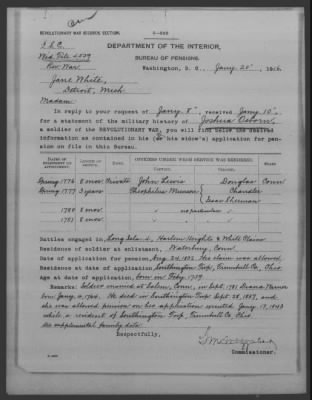 REVOLUTIONARY WAR RECORDS SECTION.
3-525
DEPARTMENT OF THE INTERIOR,
BUREAU OF PENSIONS.
Wid. File
Rev. War
Washington, D. C., Jany. 20, 1916.
Jane White,
Detroit, Mich.
Madam:
In reply to your request of Jany. 8, received Jany. 10,
for a statement of the military history of Joshua Osborn,
a soldier of the REVOLUTIONARY WAR, you will find below the desired
information as contained in his (or his widow's) application for pen-
sion on file in this Bureau.
DATES OF ENLISTMENT OR APPOINTMENT. LENGTH OF SERVICE. RANK. OFFICERS UNDER WHOM SERVICE WAS RENDERED. STATE.
CAPTAIN. COLONEL.
Spring 1776 8 mos. Private John Lewis Douglas Conn
Spring 1777 3 years Theophilus Munson Chandler
Isaac Sherman
1780 8 mos. no particulars
1781 8 mos.
Battles engaged in, Long Island, Harlem Heights & White Plains
Residence of soldier at enlistment, Waterbury, Conn.
Date of application for pension, Aug. 24, 1832. His claim was allowed.
Residence at date of application, Southington Twp., Trumbull Co., Ohio.
Age at date of application, born in Feby. 1759.
Remarks: Soldier married at Salem, Conn., in Sept. 1781
born Jany. 1764. He died in Southington Twp. Sept. 28, 1837, and
she was allowed pension on her application executed Jany. 17, 1843
while a resident of Southington Twp. Trumbull Co. Ohio.
No supplemental family data.
Respectfully,
Commissioner.